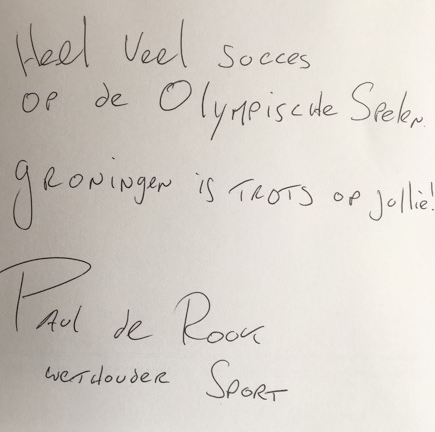 Heel Veel Succes
op de Olympische Spelen.
Groningen is TROTS op jullie!
Paul de Rook
wethouder Sport